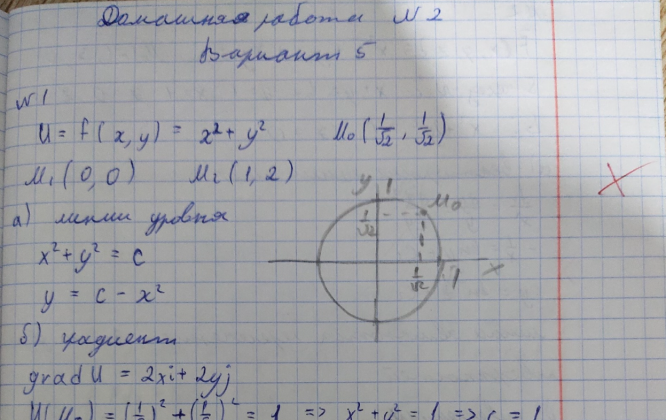 Домашняя работа №2
Вариант 5
№1
U = f(x, y) = x² + y² M₀(1/√2, 1/√2)
M₁(0, 0) M₂(1, 2)
y 1
а) линии уровня 1/√2 M₀
x² + y² = c
1/√2 1 x
y = c - x²
б) градиент
grad U = 2xi + 2yj
U(M₀) = (1/√2)² + (1/√2)² = 1 => x² + y² = 1 => c = 1